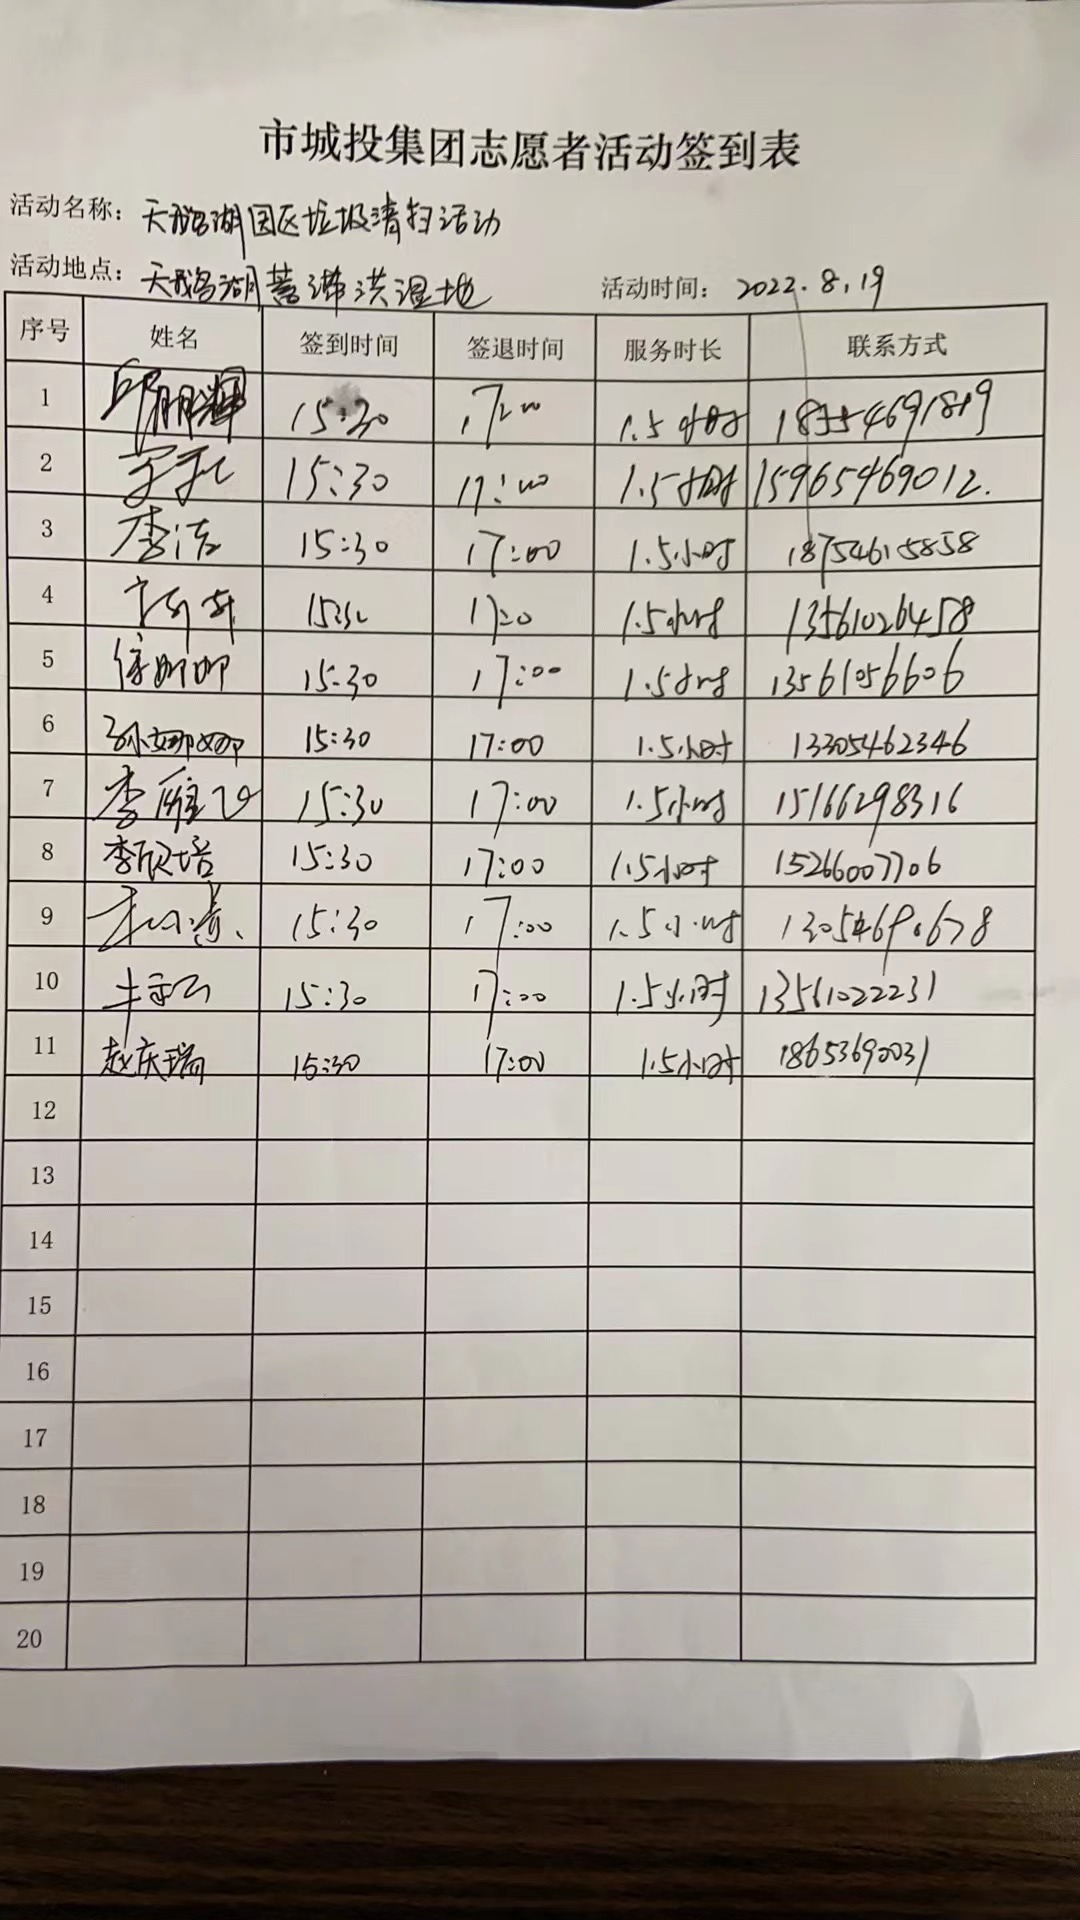 市城投集团志愿者活动签到表
活动名称：天鹅湖园区垃圾清扫活动
活动地点：天鹅湖蓄滞洪湿地 活动时间：2022.8.19
序号 姓名 签到时间 签退时间 服务时长 联系方式
1 邱朋辉 15:30 17:00 1.5小时
2 15:30 17:00 1.5小时 15965469012.
3 李洁 15:30 17:00 1.5小时 18754615858
4 15:30 17:00 1.5小时 13561026458
5 徐娜娜 15:30 17:00 1.5小时 13561056606
6 孙娜娜 15:30 17:00 1.5小时 13305462346
7 李雁飞 15:30 17:00 1.5小时 15166298316
8 李欣培 15:30 17:00 1.5小时 15266007706
9 15:30 17:00 1.5小时
10 15:30 17:00 1.5小时 13561022231
11 赵庆瑞 15:30 17:00 1.5小时 18653690031
12
13
14
15
16
17
18
19
20